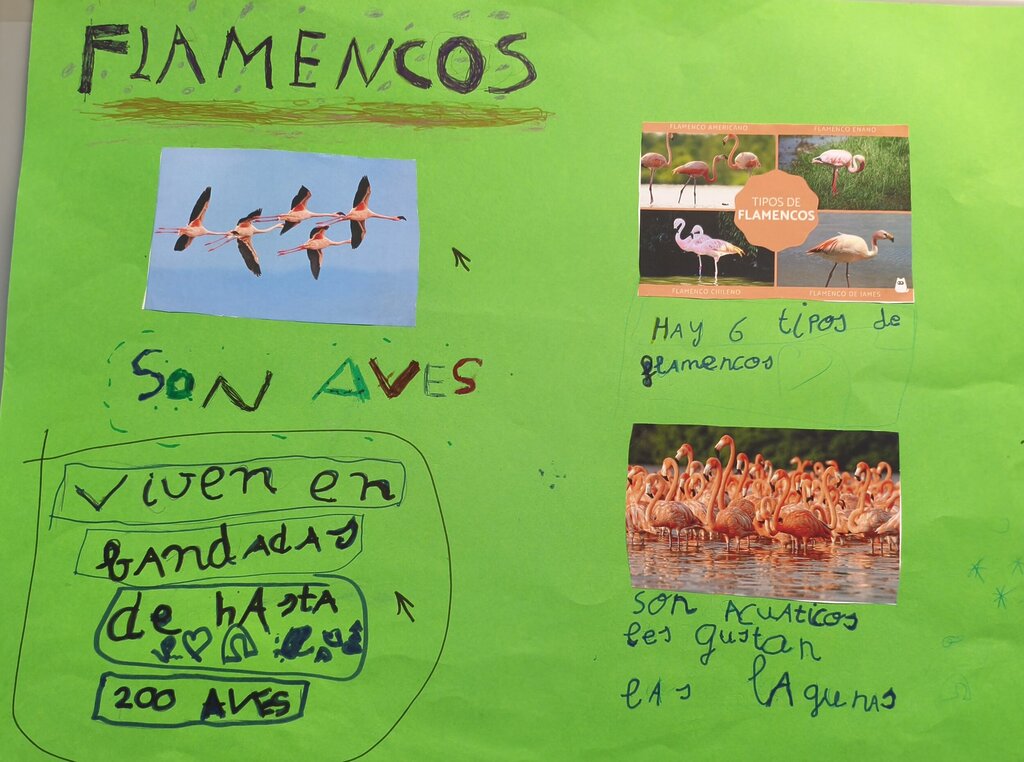 FLAMENCOS
SON AVES
viven en
bandadas
de hasta
200 AVES
FLAMENCO AMERICANO
FLAMENCO ENANO
TIPOS DE
FLAMENCOS
FLAMENCO CHILENO
FLAMENCO DE JAMES
HAY 6 tipos de
flamencos
son acuáticos
les gustan
las lagunas